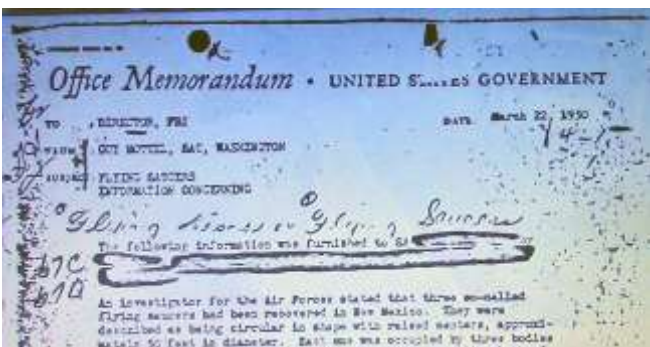 Office Memorandum • UNITED STATES GOVERNMENT
TO : DIRECTOR, FBI
DATE: March 22, 1950
FROM : GUY HOTTEL, SAC, WASHINGTON
SUBJECT: FLYING SAUCERS
INFORMATION CONCERNING
Flying Saucers
The following information was furnished to SA
b7C
An investigator for the Air Forces stated that three so-called
flying saucers had been recovered in New Mexico. They were
described as being circular in shape with raised centers, approxi-
mately 50 feet in diameter. Each one was occupied by three bodies